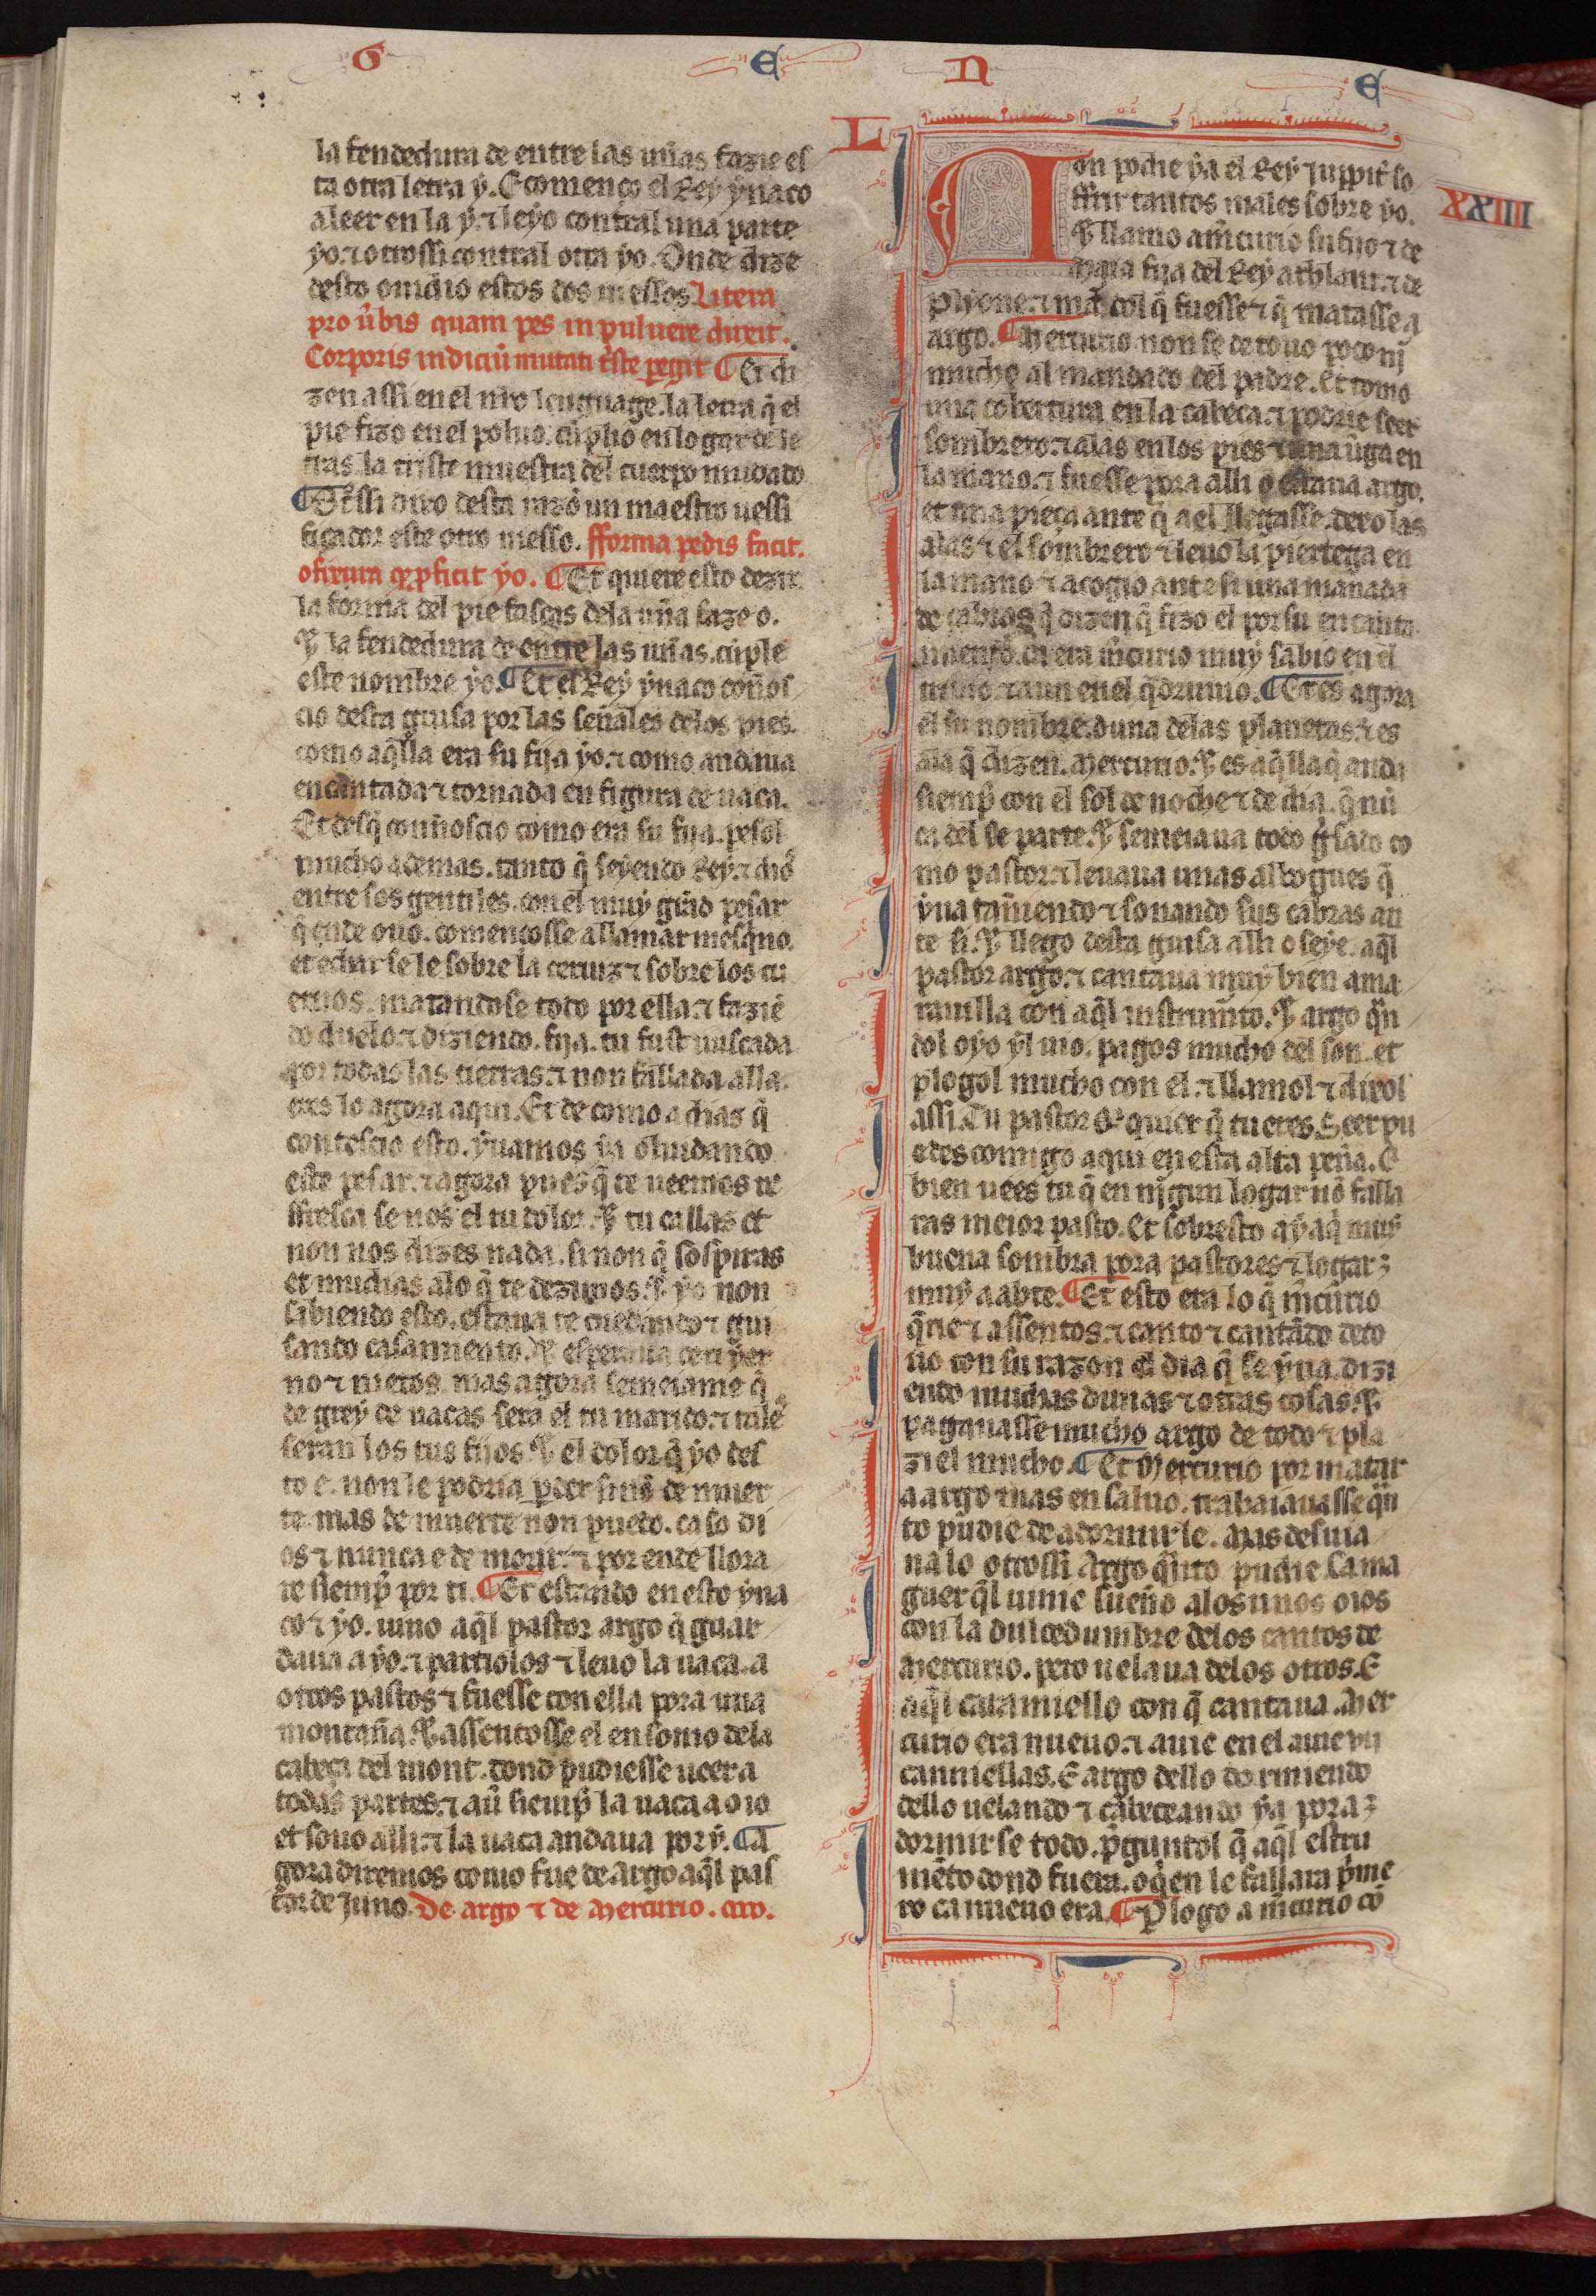 G E N E
la fendedura de entre las uñas fazie es
ta otra letra ẏ. E começo el Rey ẏnaco
a leer en la ẏ. ⁊ leyo contral una parte
yo. ⁊ otrossi contral otra ẏo. Onde dize
desto ouidio estos dos uiessos. Litera
pro ũbis quam pes in puluere duxit.
Corporis indiciũ mutati tͥste pegit ¶ Et di
zen assi en el nr̃o lenguage. la letra q̃ el
pie fizo en el poluo. cũplio en logar de le
tras. la triste muestra del cuerpo mudado
¶ Otͦssi dixo desta razõ un maestro uessi
ficador este otro uiesso. fforma pedis facit.
o fixura q̃ pficit ẏo. ¶ Et quiere esto dezir
la forma del pie fascas dela uña faze o.
⁊ la fendedura de entre las uñas. cũple
este nombre ẏo. ¶ Et el Rey ẏnaco coños
cio desta guisa por las señales delos pies.
como aq̃lla era su fija ẏo. ⁊ como andaua
encantada ⁊ tornada en figura de uaca.
Et desq̃ connoscio como era su fija. pesol
mucho ademas. tanto q̃ seyendo Rey. ⁊ dios
entre sos gentiles. con el muy grãd pesar
q̃ ende ouo. começosse a llamar mesq̃no.
et echarsele sobre la ceruiz ⁊ sobre los cu
ernos. matandose todo por ella. ⁊ faziẽ
do duelo. ⁊ diziendo. fija. tu fust buscada
por todas las tierras. ⁊ non fallada alla.
eres lo agora aqui. Et de como a dias q̃
contescio esto. ẏuamos ẏa oluidando
este pesar. ⁊ agora pues q̃ te ueemos re
ffresca se nos el tu dolor. ⁊ tu callas et
non nos dizes nada. si non q̃ sospiras
et mudias alo q̃ te dezimos. ⁊ ẏo non
sabiendo esto. estaua te cuedando ⁊ gui
sando casamiento. ⁊ esperaua de ti ẏer
no ⁊ nietos. mas agora semeiame q̃
de grey de uacas sera el tu marido. ⁊ tales
seran los tus fijos. ⁊ el dolor q̃ ẏo des
to e. non le podria pder sinõ de muer
te. mas de muerte non puedo. ca so di
os ⁊ nunca e de morir. ⁊ por ende llora
re siemp̃ por ti. ¶ Et estando en esto ẏna
co ⁊ ẏo. uino aq̃l pastor argo q̃ guar
daua a ẏo. ⁊ partiolos ⁊ leuo la uaca. a
otros pastos ⁊ fuesse con ella pora una
montaña. ⁊ assentosse el en somo dela
cabeça del mont. dond pudiesse ueer a
todas partes. ⁊ aũ siemp̃ la uaca a oio
et souo alli. ⁊ la uaca andaua por ẏ. ¶ A
gora diremos como fue de Argo aq̃l pas
tor de Juno. De argo ⁊ de Mercurio. cap̃o.
L
XXIIII
Non podie ẏa el Rey Juppit̃ so
ffrir tantos males sobre ẏo.
⁊ llamo a m̃curio su fijo ⁊ de
Maya fija del Rey athlant. ⁊ de
plẏone. ⁊ mãdol q̃ fuesse ⁊ q̃ matasse a
argo. ¶ Mercurio non se detouo poco nj̃
mucho al mandado del padre. Et tomo
una cobertura en la cabeça. ⁊ podrie seer
sombrero. ⁊ alas en los pies ⁊ una ũga en
la mano. ⁊ fuesse pora alli o estaua argo.
et una pieça ante q̃ a el llegasse. dexo las
alas ⁊ el sombrero ⁊ leuo la piertega en
la mano ⁊ acogio ante si una manada
de cabras q̃ dizen q̃ fizo el por su encanta
miento. ca era m̃curio muẏ sabio en el
triuio. ⁊ aun en el q̃druuio. ¶ Et es agora
el su nombre. duna delas planetas. ⁊ es
ala q̃ dizen. Mercurio. ⁊ es aq̃lla q̃ anda
siemp̃ con el sol de noche ⁊ de dia. q̃ nũ
ca del se parte. ⁊ semeiaua todo guisado co
mo pastor. ⁊ leuaua unas albogues q̃
ẏua tañiendo ⁊ sonando sus cabras an
te si. ⁊ llego desta guisa alli o seẏe. aq̃l
pastor argo. ⁊ cantaua muẏ bien a ma
rauilla con aq̃l instrumẽto. ⁊ argo q̃n
dol oẏo ẏl uio. pagos mucho del son. et
plogol mucho con el. ⁊ llamol ⁊ dixol
assi. Tu pastor q̃l quier q̃ tu eres. Seer pu
edes comigo aqui en esta alta peña. ⁊
bien uees tu q̃ en nj̃gun logar nõ falla
ras meior pasto. Et sobresto aẏ aq̃ muẏ
buena sombra pora pastores ⁊ logar
muẏ aabte. ¶ Et esto era lo q̃ m̃curio
q̃rie ⁊ assentos. ⁊ canto ⁊ cantãdo deto
uo con su razon el dia q̃ se ẏua. dizi
endo muchas dunas ⁊ otras cosas. ⁊
pagauasse mucho argo de todo ⁊ pla
ziel mucho. ¶ Et Mercurio por matar
a argo mas en saluo. trabaiauasse q̃n
to pudie de adormirle. Mas desuia
ualo otrossi Argo q̃nto pudie. Ca ma
guer q̃l uinie sueño alos unos oios
con la dulcedumbre delos cantos de
Mercurio. pero uelaua delos otros. E
aq̃l caramiello con q̃ cantaua. Mer
curio era nueuo. ⁊ auie en el
canniellas. E argo dello dormiendo
dello uelando ⁊ cabeceando ẏa pora
dormirse todo. p̃guntol q̃ aq̃l estru
mẽto dond fuera. o q̃en le fallara p̃me
ro ca nueuo era. ¶ Plogo a m̃curio cõ